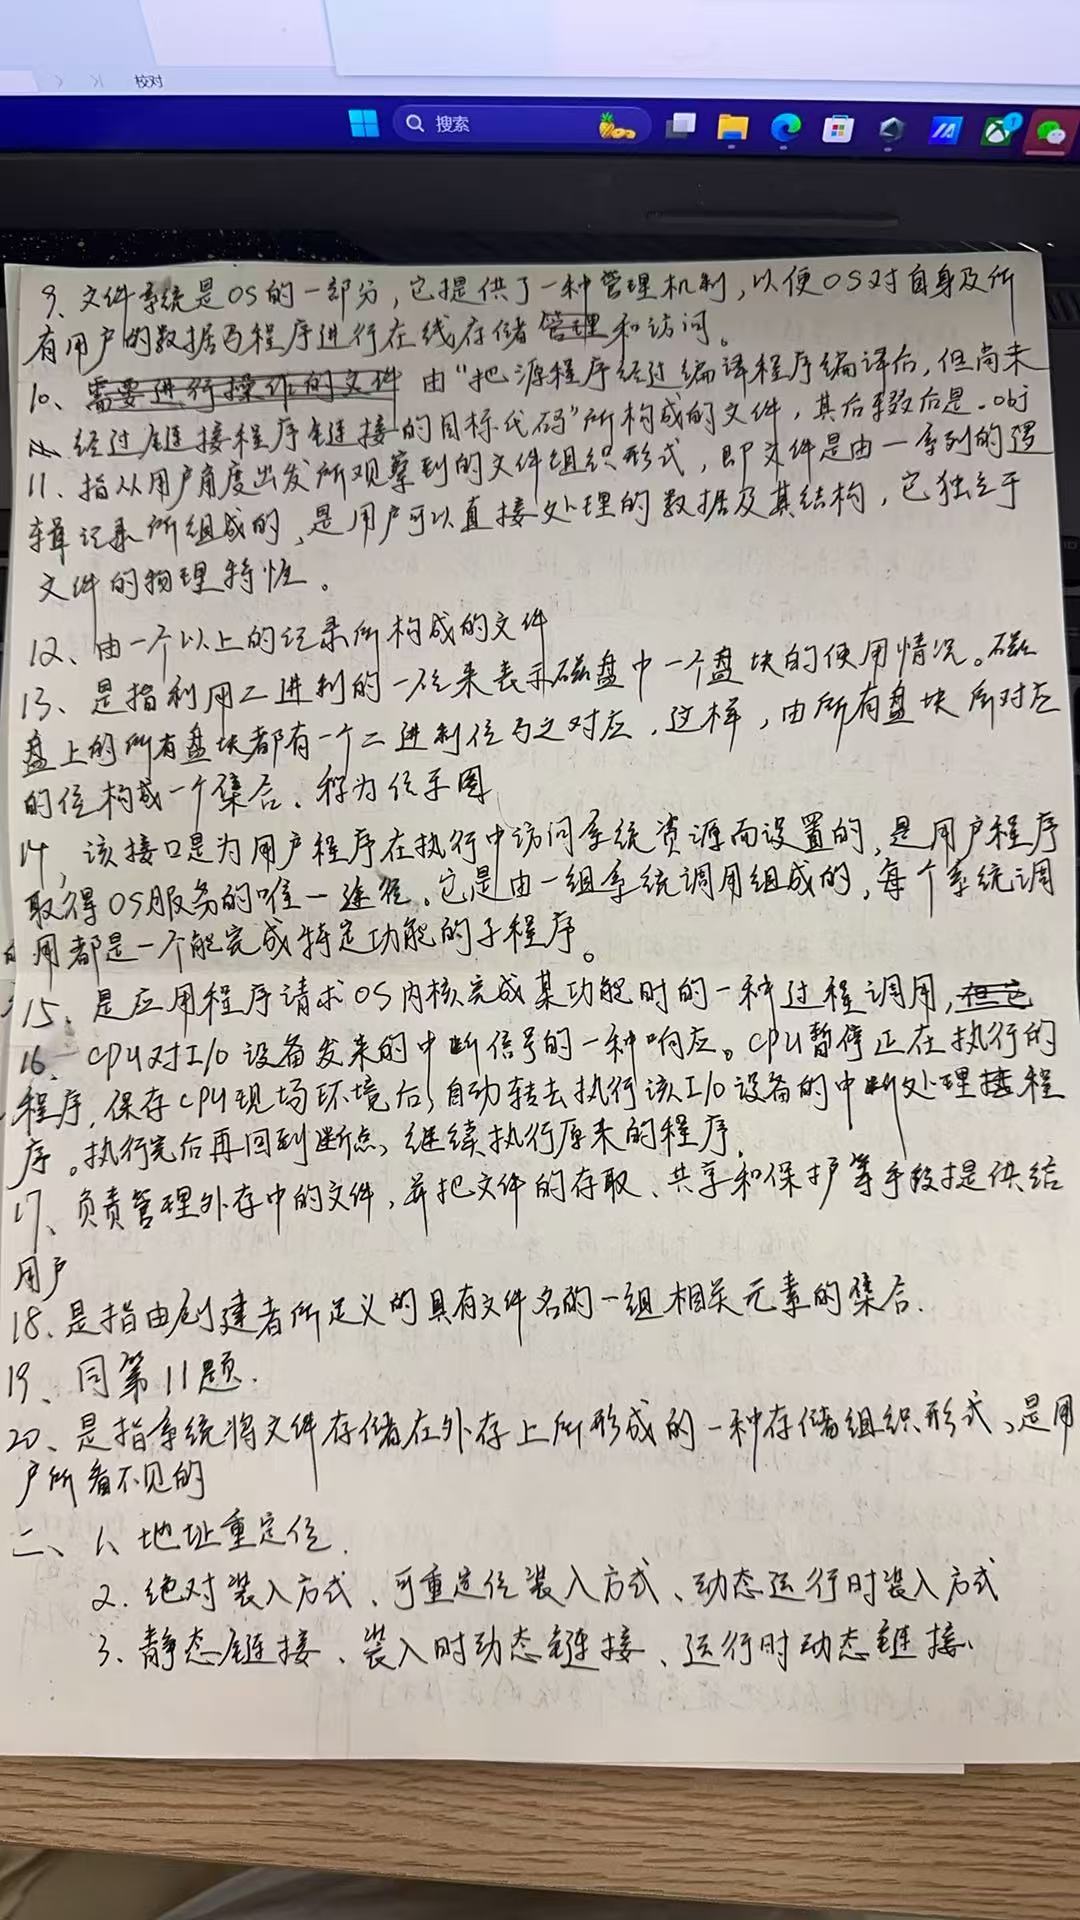 校对
搜索
9、文件系统是OS的一部分，它提供了一种管理机制，以便OS对自身及所
有用户的数据与程序进行在线存储管理和访问。
10、需要进行操作的文件 由“把源程序经过编译程序编译后，但尚未
经过链接程序链接的目标代码”所构成的文件，其后缀后是.obj
11、指从用户角度出发所观察到的文件组织形式，即文件是由一系列的逻
辑记录所组成的，是用户可以直接处理的数据及其结构，它独立于
文件的物理特性。
12、由一个以上的记录所构成的文件
13、是指利用二进制的一位来表示磁盘中一个盘块的使用情况。磁
盘上的所有盘块都有一个二进制位与之对应，这样，由所有盘块所对应
的位构成一个集合、称为位示图
14、该接口是为用户程序在执行中访问系统资源而设置的，是用户程序
取得OS服务的唯一途径。它是由一组系统调用组成的，每个系统调
用都是一个能完成特定功能的子程序。
15、是应用程序请求OS内核完成某功能时的一种过程调用，但它
16、CPU对I/O设备发来的中断信号的一种响应。CPU暂停正在执行的
程序，保存CPU现场环境后，自动转去执行该I/O设备的中断处理程
序。执行完后再回到断点，继续执行原来的程序。
17、负责管理外存中的文件，并把文件的存取、共享和保护等手段提供给
用户
18、是指由创建者所定义的具有文件名的一组相关元素的集合.
19、同第11题.
20、是指系统将文件存储在外存上所形成的一种存储组织形式，是用
户所看不见的
二、1、地址重定位.
2、绝对装入方式、可重定位装入方式、动态运行时装入方式
3、静态链接、装入时动态链接、运行时动态链接.